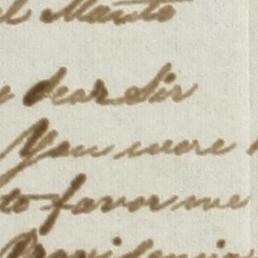 el Manto
dear Sir
You were
to favor me